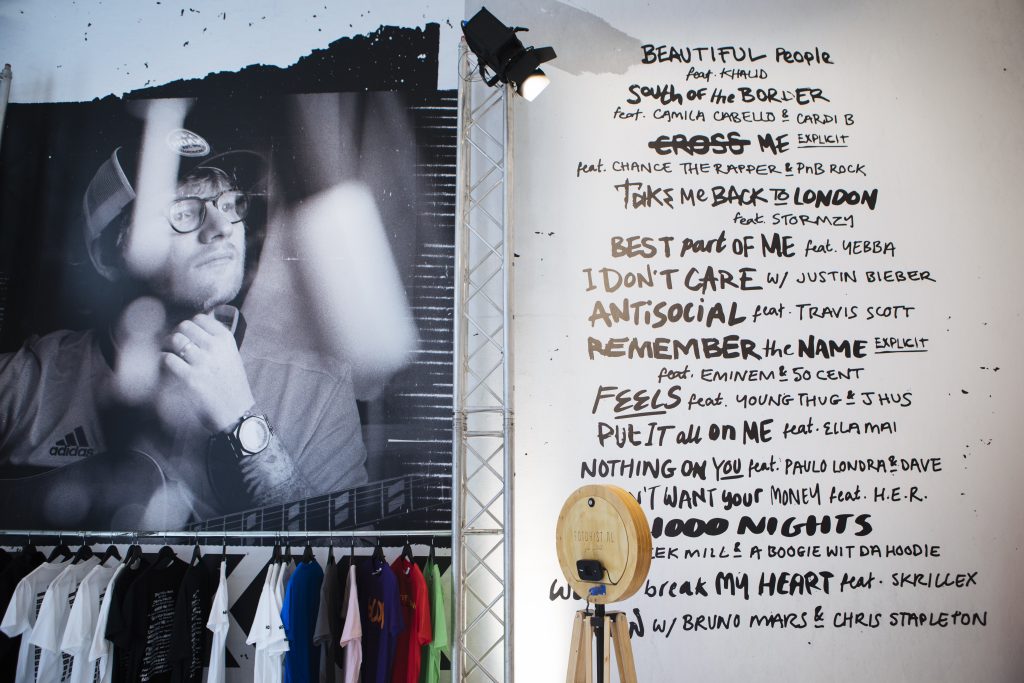 BEAUTIFUL People
feat. KHALID
South of the BORDER
feat. CAMILA CABELLO & CARDI B
CROSS ME EXPLICIT
feat. CHANCE THE RAPPER & PnB ROCK
TAKE Me BACK to LONDON
feat. STORMZY
BEST part OF ME feat. YEBBA
I DON'T CARE W/ JUSTIN BIEBER
ANTiSOCIAL feat. TRAVIS SCOTT
REMEMBER the NAME EXPLICIT
feat. EMINEM & 50 CENT
FEELS feat. YOUNG THUG & J HUS
PUT IT all ON ME feat. ELLA MAI
NOTHING ON YOU feat. PAULO LONDRA & DAVE
N'T WANT your MONEY feat. H.E.R.
1000 NIGHTS
EEK MILL & A BOOGIE WIT DA HOODIE
break MY HEART feat. SKRILLEX
W/ BRUNO MARS & CHRIS STAPLETON
adidas